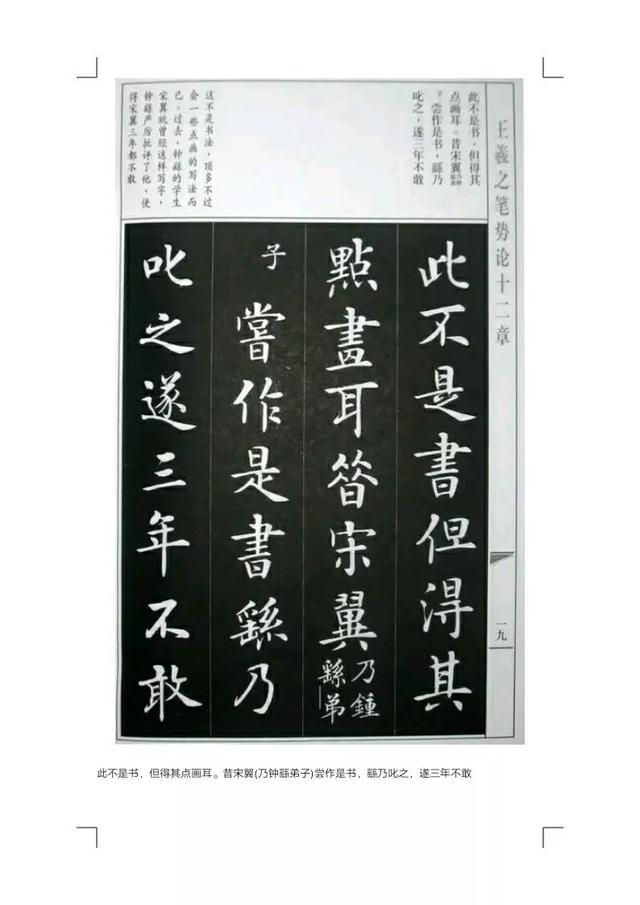 王羲之笔势论十二章
一九
此不是书，但得其
点画耳。昔宋翼乃钟繇弟
子尝作是书，繇乃
叱之，遂三年不敢
这不是书法，顶多不过
会一些点画的写法而
已。过去，钟繇的学生
宋翼就曾经这样写字，
钟繇严厉批评了他，使
得宋翼三年都不敢
此不是書但淂其
點畫耳昝宋翼乃鍾
繇弟
子嘗作是書繇乃
叱之遂三年不敢
此不是书，但得其点画耳。昔宋翼(乃钟繇弟子)尝作是书，繇乃叱之，遂三年不敢